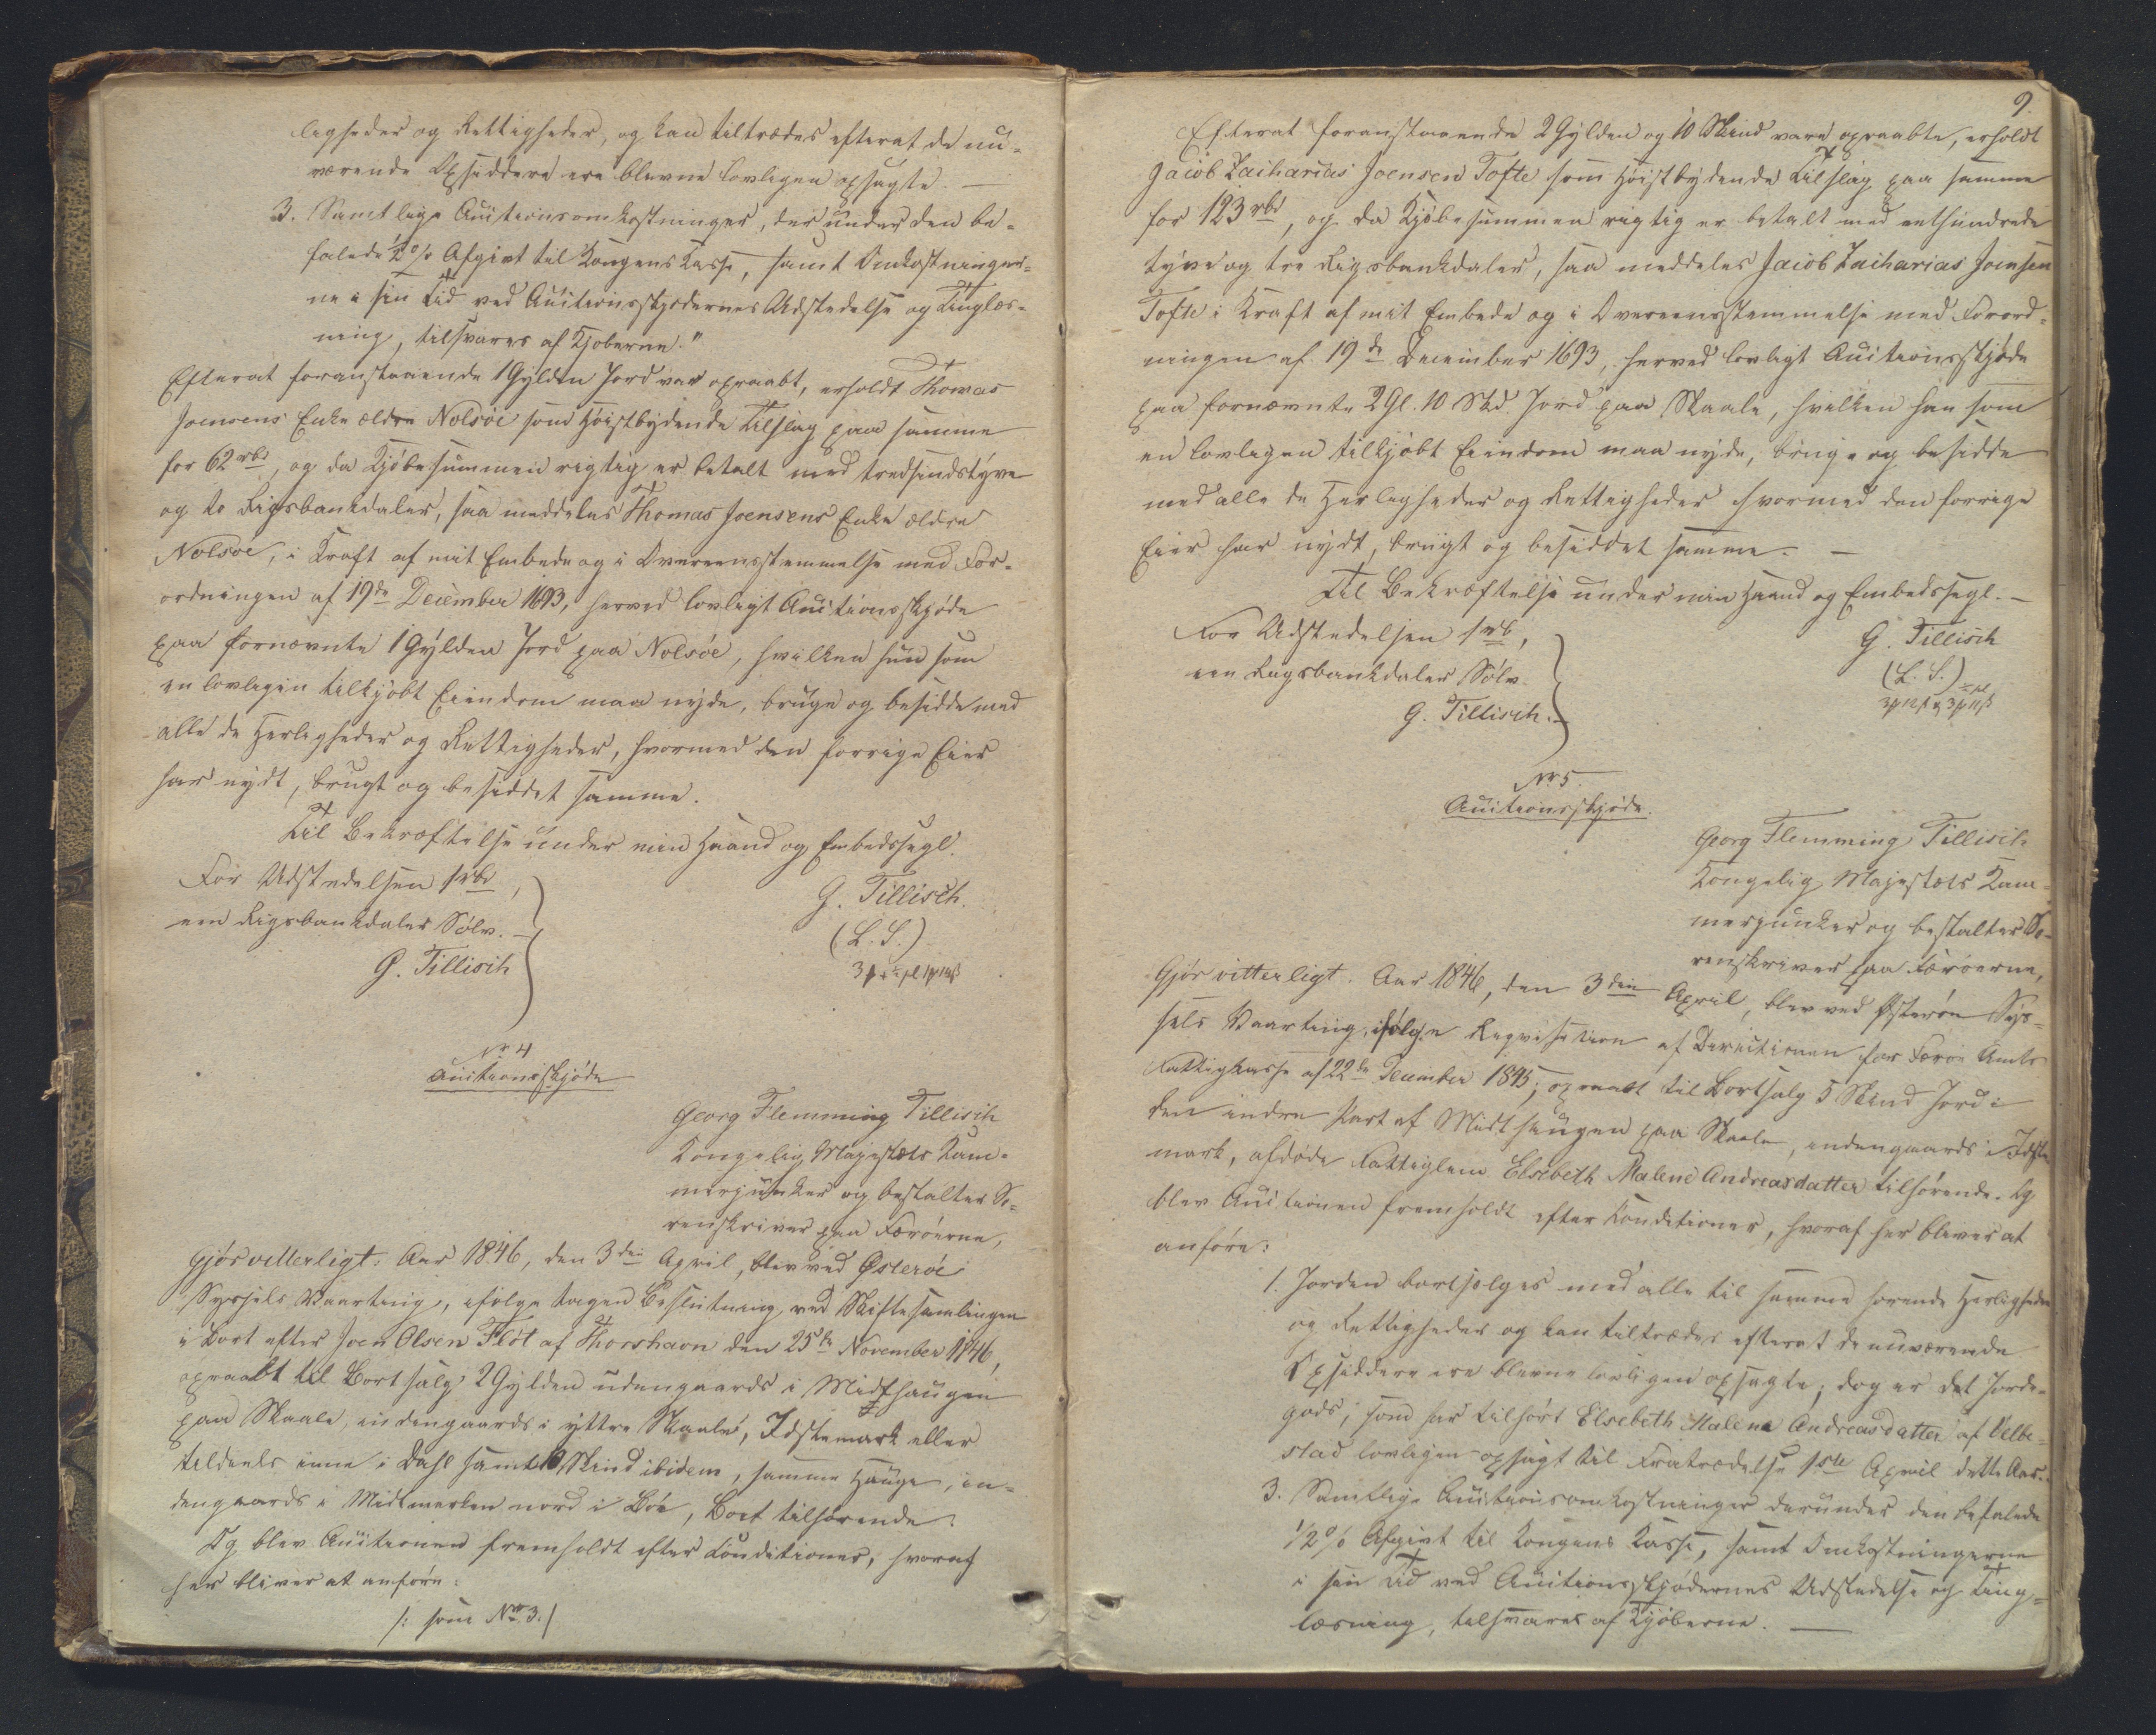 ligheder og Rettigheder, og kan tiltrædes efterat de nu-
værende Opsiddere ere blevne lovligen opsagte. —
3. Samtlige Auctionsomkostninger, derunder den be-
falede ½ % Afgivt til Kongens Kasse, samt Omkostninger-
ne i sin Tid ved Auctionsskjødernes Udstedelse og Tinglæs-
ning, tilsvares af Kjøberne."
Efterat foranstaaende 1 Gylden Jord var opraabt, erholdt Thomas
Joensens Enke ældre Nolsöe som Høistbydende Tilslag paa samme
for 62 rbd, og da Kjøbesummen rigtig er betalt med tredsindstyve
og to Rigsbankdaler, saa meddeles Thomas Joensens Enke ældre
Nolsöe, i Kraft af mit Embede og i Overeensstemmelse med For-
ordningen af 19de December 1693, herved lovligt Auctionsskjøde
paa fornævnte 1 Gylden Jord paa Nolsöe, hvilken hun som
en lovligen tilkjøbt Eiendom maa nyde, bruge og besidde med
alle de Herligheder og Rettigheder, hvormed den forrige Eier
har nydt, brugt og besiddet samme.
Til Bekræftelse under min Haand og Embedssegl.
For Udstedelsen 1 rbd,
een Rigsbankdaler Sölv. —
G. Tillisch
G. Tillisch.
(L. S.)
No 4
Auctionsskjøde
Georg Flemming Tillisch
Kongelig Majestæts Kam-
merjunker og bestalter So-
renskriver paa Færöerne,
Gjør vitterligt: Aar 1846, den 3die April, blev ved Østeröe
Syssels Vaarting, ifølge tagen Beslutning ved Skiftesamlingen
i Boet efter Joen Olsen Flöt af Thorshavn den 25de November 1846,
opraabt til Bortsalg 2 Gylden udengaards i Midthaugen
paa Skaale, indengaards i yttre Skaale, Idstemark eller
tildeels inne i Dahl samt 10 Skind ibidem, samme Hauge, in-
dengaards i Midtmarken nord i Böe, Boet tilhørende.
Og blev Auctionen fremholdt efter Conditioner, hvoraf
her bliver at anføre:
/: som No 3./
9.
Efterat foranstaaende 2 Gylden og 10 Skind vare opraabte, erholdt
Jacob Zacharias Joensen Tofte som Høistbydende Tilslag paa samme
for 123 rbd, og da Kjøbesummen rigtig er betalt med eethundrede
tyve og tre Rigsbankdaler, saa meddeles Jacob Zacharias Joensen
Tofte i Kraft af mit Embede og i Overeensstemmelse med Forord-
ningen af 19de December 1693, herved lovligt Auctionsskjøde
paa fornævnte 2 Gl. 10 Skd. Jord paa Skaale, hvilken han som
en lovligen tilkjøbt Eiendom maa nyde, bruge og besidde
med alle de Herligheder og Rettigheder hvormed den forrige
Eier har nydt, brugt og besiddet samme. —
Til Bekræftelse under min Haand og Embedssegl. —
For Udstedelsen 1 rb,
een Rigsbankdaler Sölv.
G. Tillisch. —
G. Tillisch
(L. S.)
No 5.
Auctionsskjøde.
Georg Flemming Tillisch
Kongelig Majestæts Kam-
merjunker og bestalter So-
renskriver paa Færöerne,
Gjør vitterligt. Aar 1846, den 3die April, blev ved Østeröe Sys-
sels Vaarting, ifølge Reqvisition af Directionen for Færöe Amts
Fattigkasse af 22de December 1845, opraabt til Bortsalg 5 Skind Jord i
den indre Part af Midthaugen paa Skaale, indengaards i Idste-
mark, afdøde Fattiglem Elsebeth Malene Andreasdatter tilhørende. Og
blev Auctionen fremholdt efter Conditioner, hvoraf her bliver at
anføre:
1. Jorden bortsælges med alle til samme hørende Herligheder
og Rettigheder og kan tiltrædes efterat de nuværende
Opsiddere ere blevne lovligen opsagte; dog er det Jorde-
gods, som har tilhørt Elsebeth Malene Andreasdatter af Velbe-
stad lovligen opsagt til Fratrædelse 1ste April dette Aar.
3. Samtlige Auctionsomkostninger derunder den befalede
1/2 % Afgivt til Kongens Kasse, samt Omkostningerne
i sin Tid ved Auctionsskjødernes Udstedelse og Ting-
læsning, tilsvares af Kjøberne. —